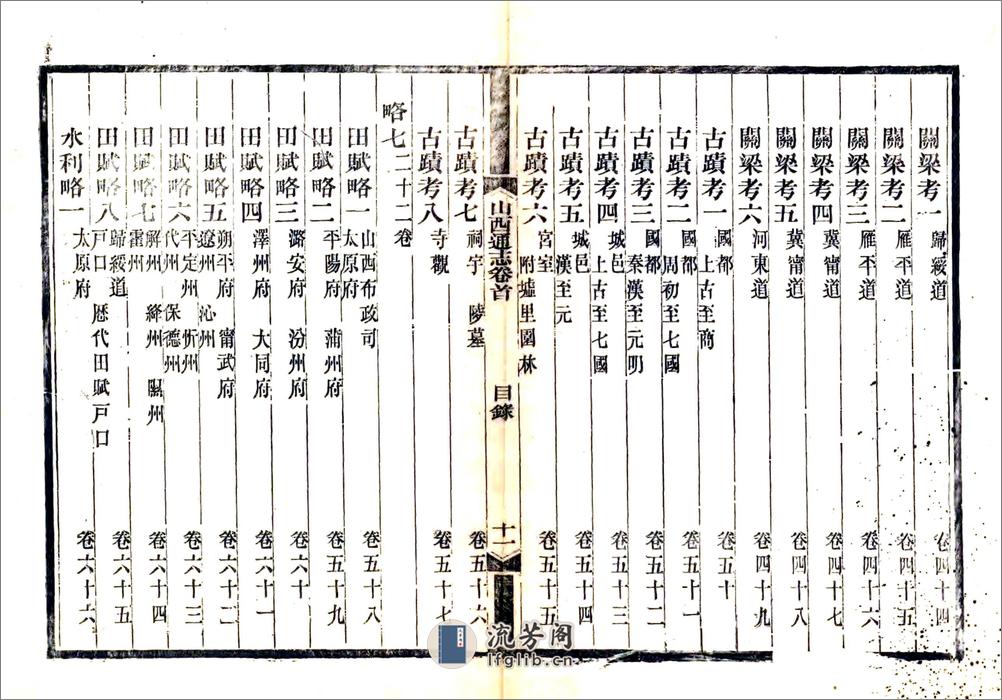 關梁考一 歸綏道 卷四十四
關梁考二 雁平道 卷四十五
關梁考三 雁平道 卷四十六
關梁考四 冀甯道 卷四十七
關梁考五 冀甯道 卷四十八
關梁考六 河東道 卷四十九
古蹟考一 國都 上古至商 卷五十
古蹟考二 國都 周初至七國 卷五十一
古蹟考三 國都 秦漢至元明 卷五十二
古蹟考四 城邑 上古至七國 卷五十三
古蹟考五 城邑 漢至元 卷五十四
古蹟考六 宮室 附墟里園林 卷五十五
山西通志卷首 目錄 十一
古蹟考七 祠宇 陵墓 卷五十六
古蹟考八 寺觀 卷五十七
略七二十二卷
田賦略一 山西布政司 太原府 卷五十八
田賦略二 平陽府 蒲州府 卷五十九
田賦略三 潞安府 汾州府 卷六十
田賦略四 澤州府 大同府 卷六十一
田賦略五 朔平府 甯武府 遼州 沁州 卷六十二
田賦略六 平定州 忻州 代州 保德州 卷六十三
田賦略七 解州 絳州 隰州 霍州 卷六十四
田賦略八 歸綏道 戶口 歷代田賦戶口 卷六十五
水利略一 太原府 卷六十六
流芳阁
lfglib.cn